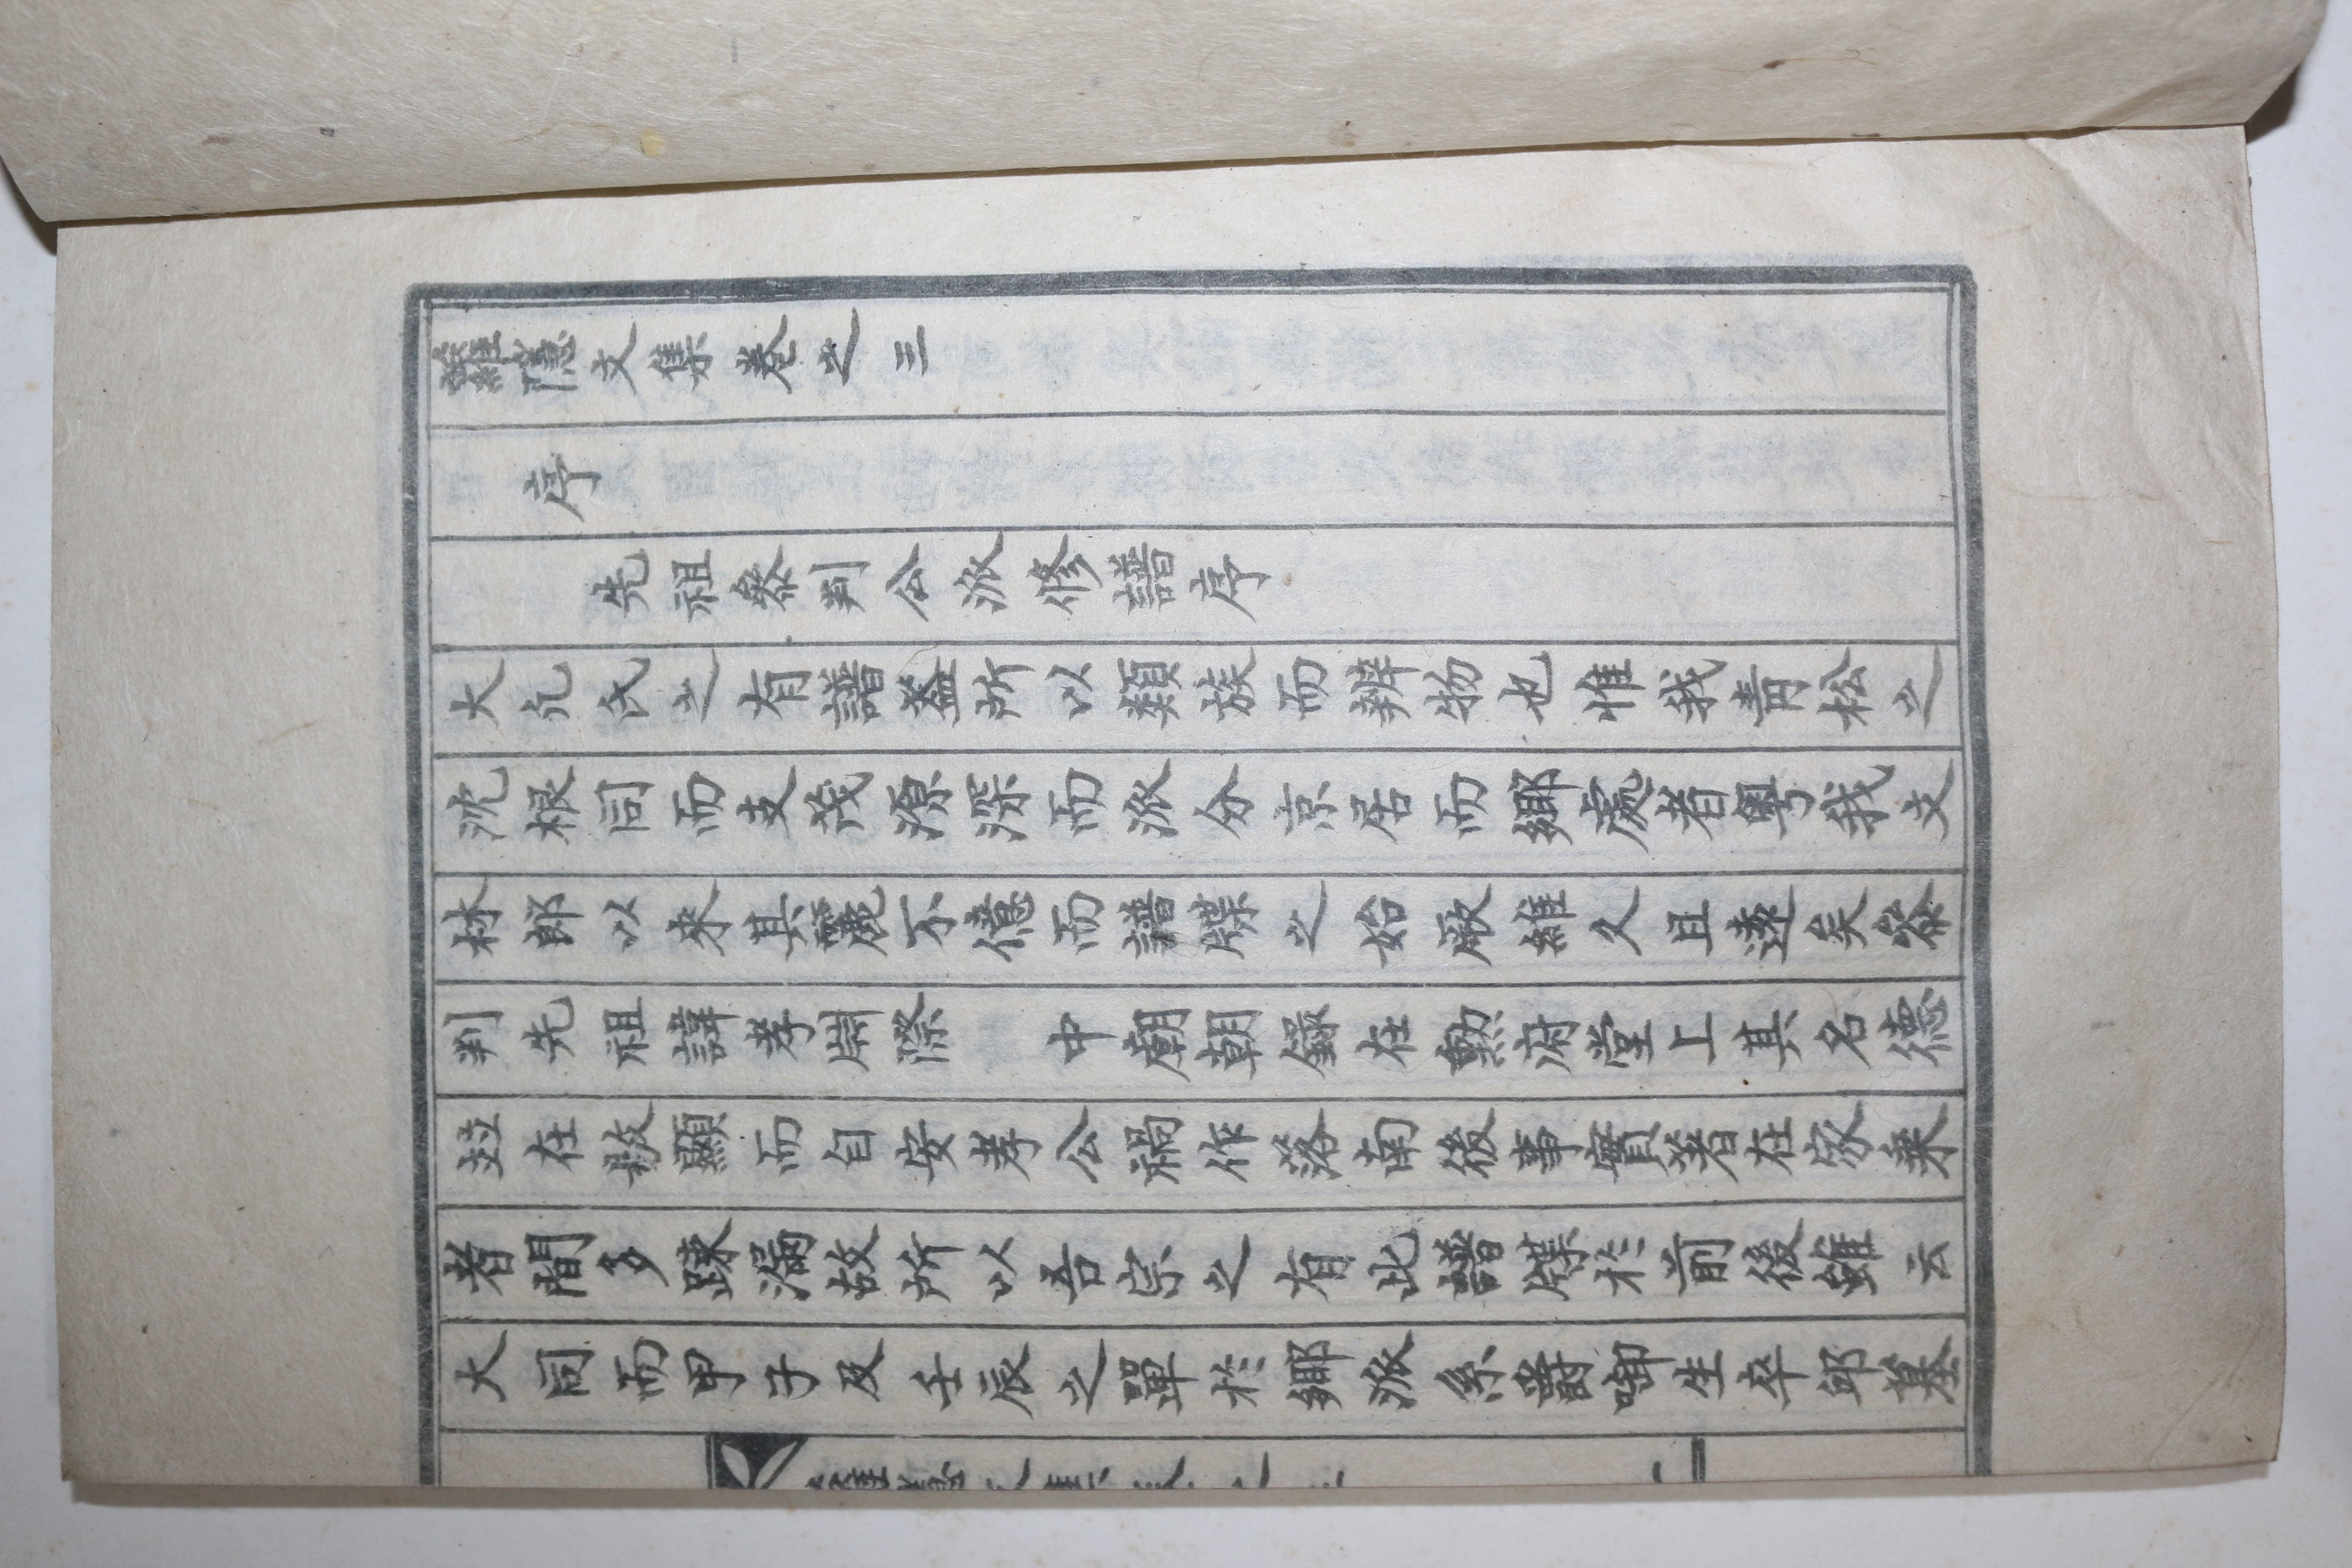 蘿隱文集卷之三
序
先祖叅判公派修譜序
大凢氏之有譜盖所以類族而辨物也惟我靑松之
沈根同而支茂源深而派分京居而鄕處者粤我文
林郎以來其麗不億而譜牒之始厥維久且遠矣叅
判先祖諱孝際 中廟朝錄在勲府堂上其名德
竝在敭顯而自安孝公禍作落南後事實著在家乗
者間多踈漏故所以吾宗之有此譜牒於前後雖云
大同而甲子及壬辰之單於鄕派系爵啣生卒邱墓